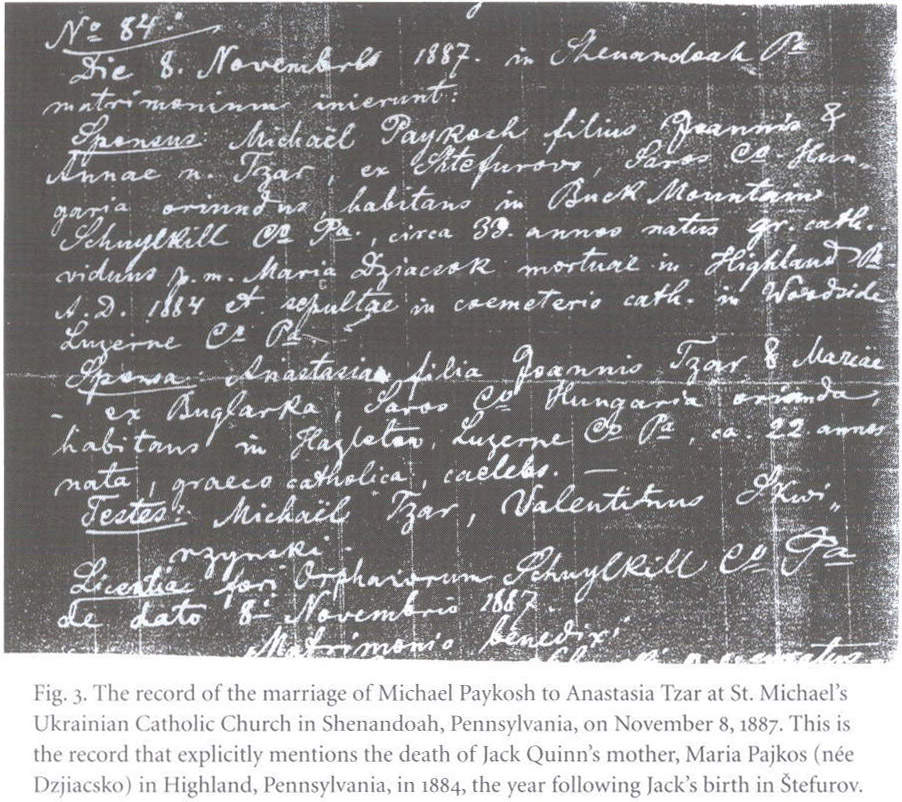 No 84.
Die 8. Novembris 1887. in Shenandoah Pa
matrimonium inierunt:
Sponsus: Michaël Paykosh filius Joannis &
Annae n. Tzar, ex Shtefurovo, Saros Co. Hun„
garia oriundus, habitans in Buck Mountain
Schuylkill Co Pa., circa 33. annos natus gr. cath.
viduus p. m. Maria Dziacsok mortuae in Highland Pa
A. D. 1884 et sepultae in coemeterio cath. in Woodside
Luzerne Co Pa
Sponsa: Anastasia filia Joannis Tzar & Mariae
- ex Buglarka, Saros Co Hungaria orianda,
habitans in Hazleton, Luzerne Co Pa, ca. 22 annos
nata, graeco catholica, caelebs. —
Testes: Michaël Tzar, Valentinus Skwi„
rzynski
Licentia fori Orphaiorum Schuylkill Co Pa
de dato 8 Novembris 1887.
Matrimonio benedixi
Fig. 3. The record of the marriage of Michael Paykosh to Anastasia Tzar at St. Michael's
Ukrainian Catholic Church in Shenandoah, Pennsylvania, on November 8, 1887. This is
the record that explicitly mentions the death of Jack Quinn's mother, Maria Pajkos (née
Dzjiacsko) in Highland, Pennsylvania, in 1884, the year following Jack's birth in Štefurov.